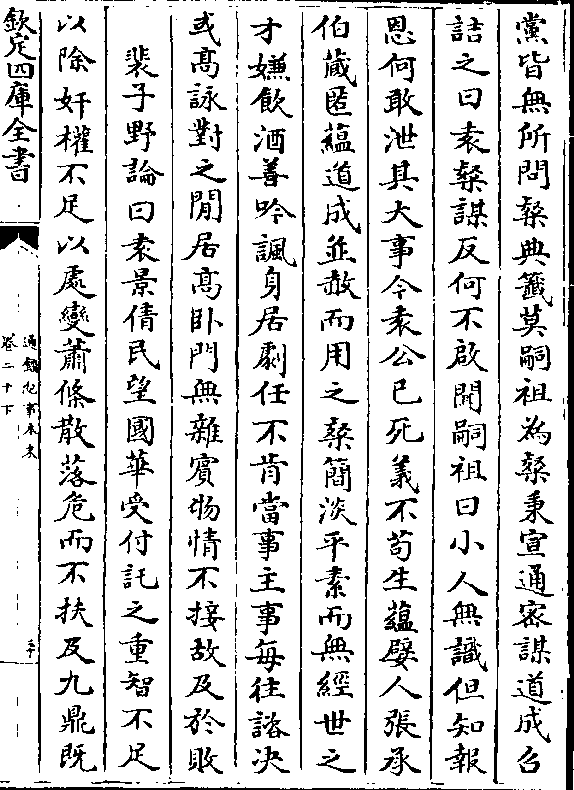 黨皆無所問粲典籤莫嗣祖為粲秉宣通宻謀道成召
詰之曰袁粲謀反何不啟聞嗣祖曰小人無識但知報
恩何敢泄其大事今袁公已死義不苟生蘊嬖人張承
伯藏匿蘊道成並赦而用之粲簡淡平素而無經世之
才嫌飲酒善吟諷身居劇任不肯當事主事每往諮决
或髙詠對之閒居髙卧門無雜賓物情不接故及於敗
裴子野論曰袁景倩民望國華受付託之重智不足
以除奸權不足以處變蕭條散落危而不扶及九鼎既
欽定四庫全書
通鑑紀事本末
卷二十下